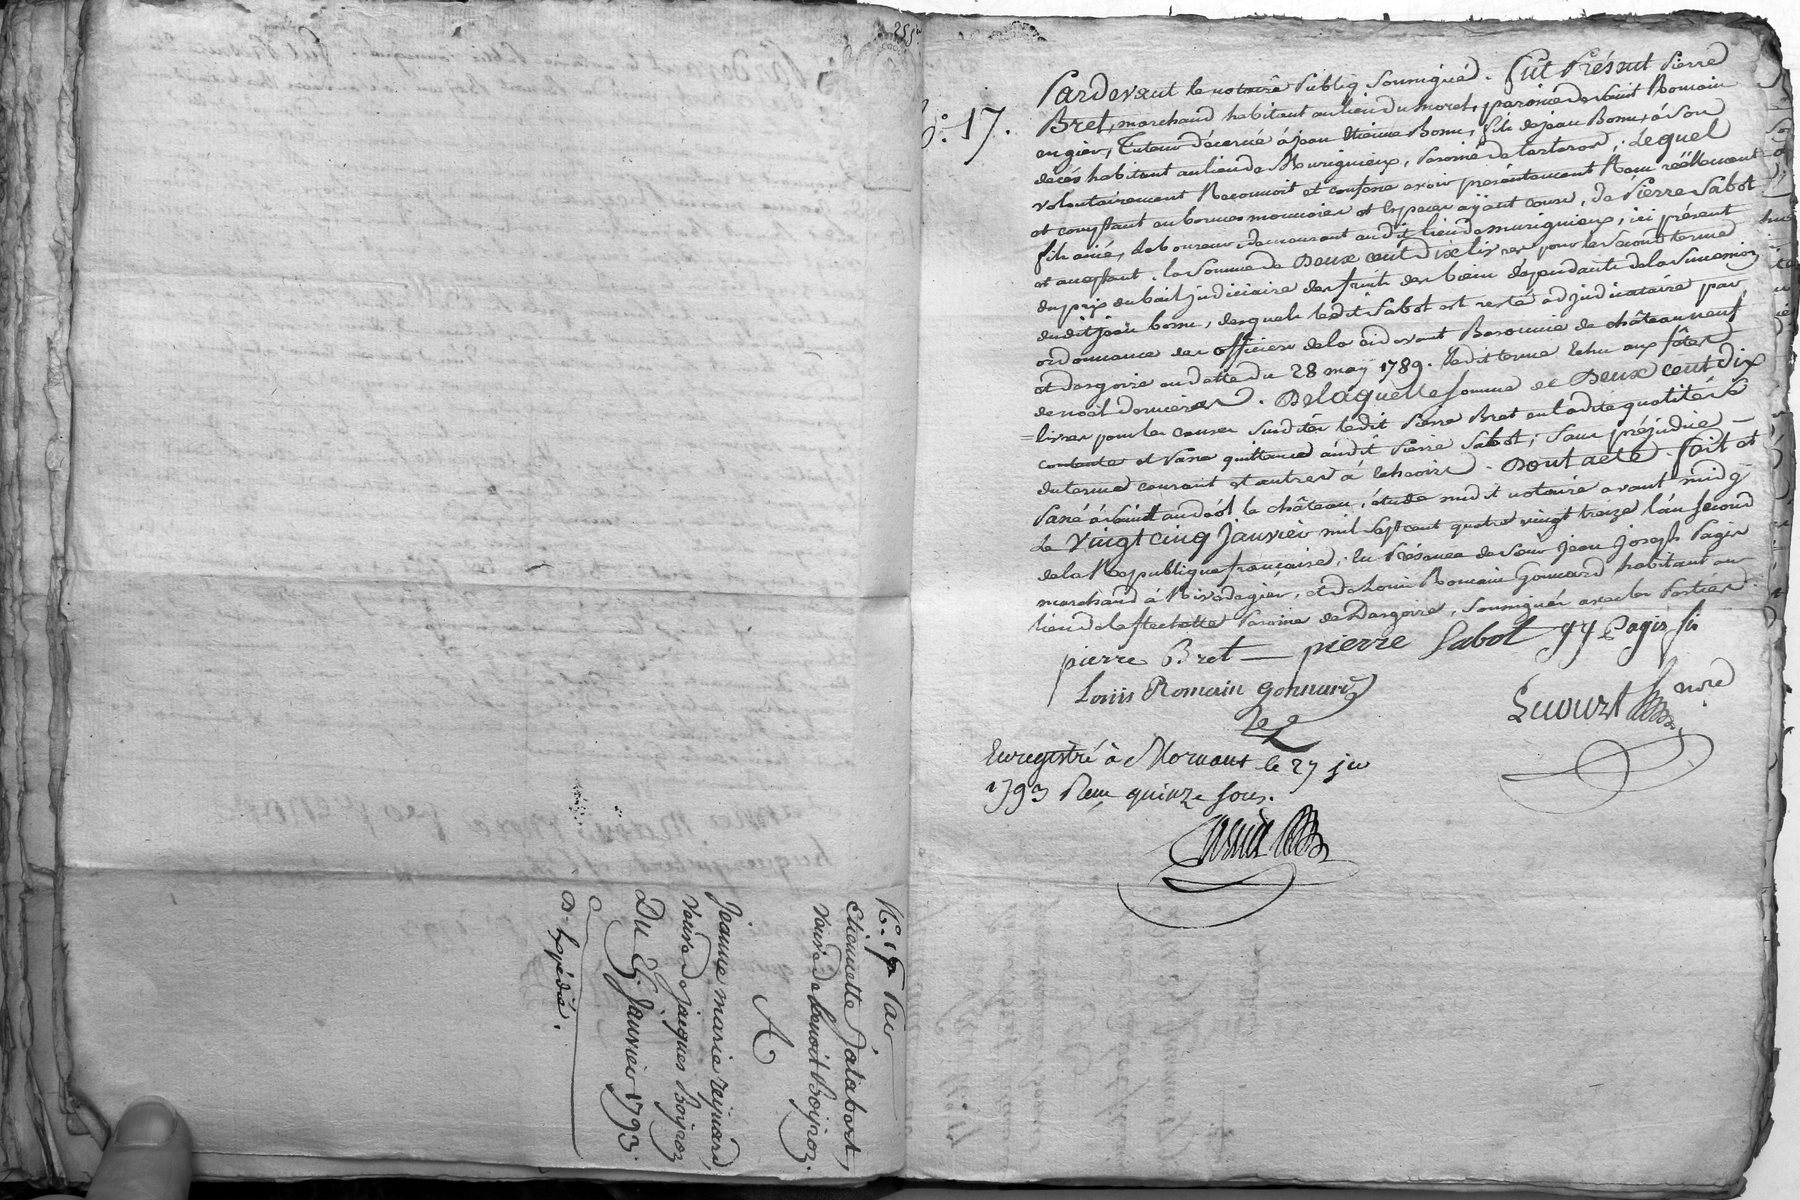 N°. 17.
Pardevant le notaire Publiq soussigné. fut Présent Pierre
Bret, marchand habitant au lieu du moret, paroisse de saint Romain
en gier, Tuteur décerné à jean Etienne Bonu, fils de jean Bonu, à son
décès habitant au lieu de Murigneux, Paroisse de tartaras; Lequel
volontairement Reconnoit et confesse avoir présentement Reçu réellement
et comptant en bonnes monnoies et Especes ayant cours, de Pierre Sabot
fils ainé, laboureur demeurant audit lieu de murigneux, ici présent
et acceptant, la Somme de Deux cent Dix livres pour le Second terme
du prix du bail judiciaire des fruits des biens dépendants de la Succession
dudit jean bonu, desquels ledit Sabot est resté adjudicataire par
ordonnance des officiers de la cidevant Baronnie de châteauneuf
et dargoire en datte du 28 may 1789. Ledit terme Echu aux fêtes
de noël dernieres. De laquelle somme de Deux cent Dix
livres pour les causes Susdites ledit Pierre Bret en ladite qualité se
contente et Passe quittance audit Pierre Sabot; Sans préjudice
du terme courant et autres à Echeoir. Dont acte. fait et
Passé à Saint andéol le château, étude mudit notaire avant midy
Le Vingt cinq Janvier mil Sept cent quatre vingt treize l'an Second
de la République française; En Présence de Sieur Jean Joseph Pagis
marchand à Rivedegier, et de Louis Romain Gonnard habitant au
lieu de la flechette Paroisse de Dargoire, Soussignés avec les Parties.
pierre Bret — pierre Sabot JJ Pagis fils
Louis Romain gonnard
Enregistré à Mornant le 27 jer
1793 Reçu quinze sous.
N°. 17 Par
Etiennette Jalabert,
veuve de benoit Boiron.
A
Jeanne marie reynard,
veuve de jacques Boiron
Du 25 Janvier 1793.
Expédié.